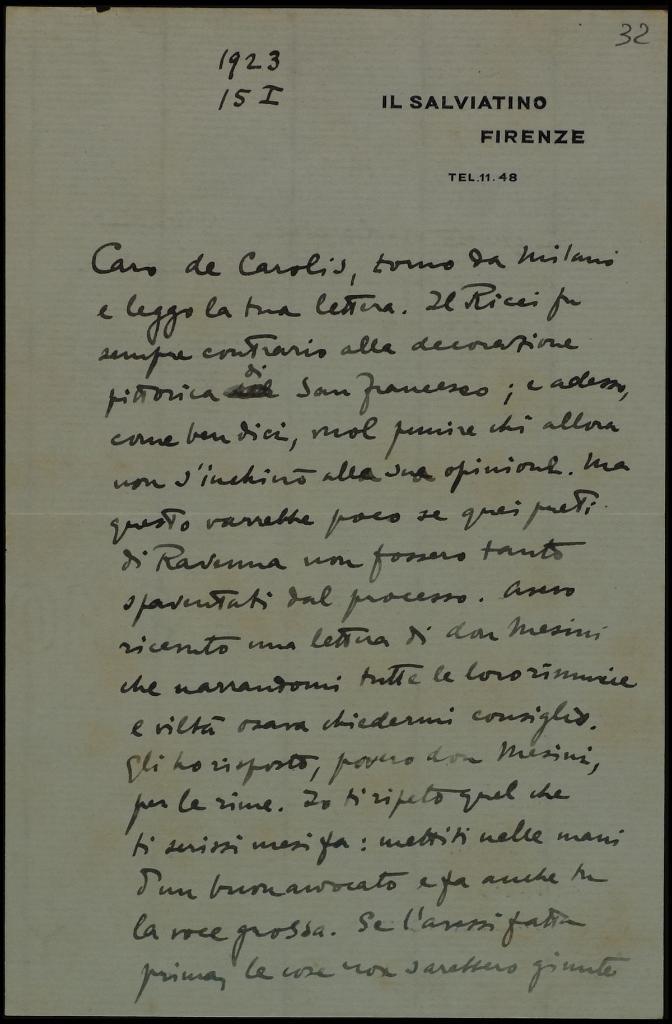 32
1923
15 I
IL SALVIATINO
FIRENZE
TEL. 11. 48
Caro de Carolis, torno da Milano
e leggo la tua lettera. Il Ricci fu
sempre contrario alla decorazione
pittorica di San Francesco; e adesso,
come ben dici, vuol punire chi allora
non s'inchinò alla sua opinione. Ma
questo varrebbe poco se quei preti
di Ravenna non fossero tanto
spaventati dal processo. Avevo
ricevuto una lettera di don Mesini
che narrandomi tutte le loro rinuncie
e viltà osava chiedermi consiglio.
Gli ho risposto, povero don Mesini,
per le rime. Io ti ripeto quel che
ti scrissi mesi fa: mettiti nelle mani
d'un buon avvocato e fa anche tu
la voce grossa. Se l'avessi fatta
prima, le cose non sarebbero giunte